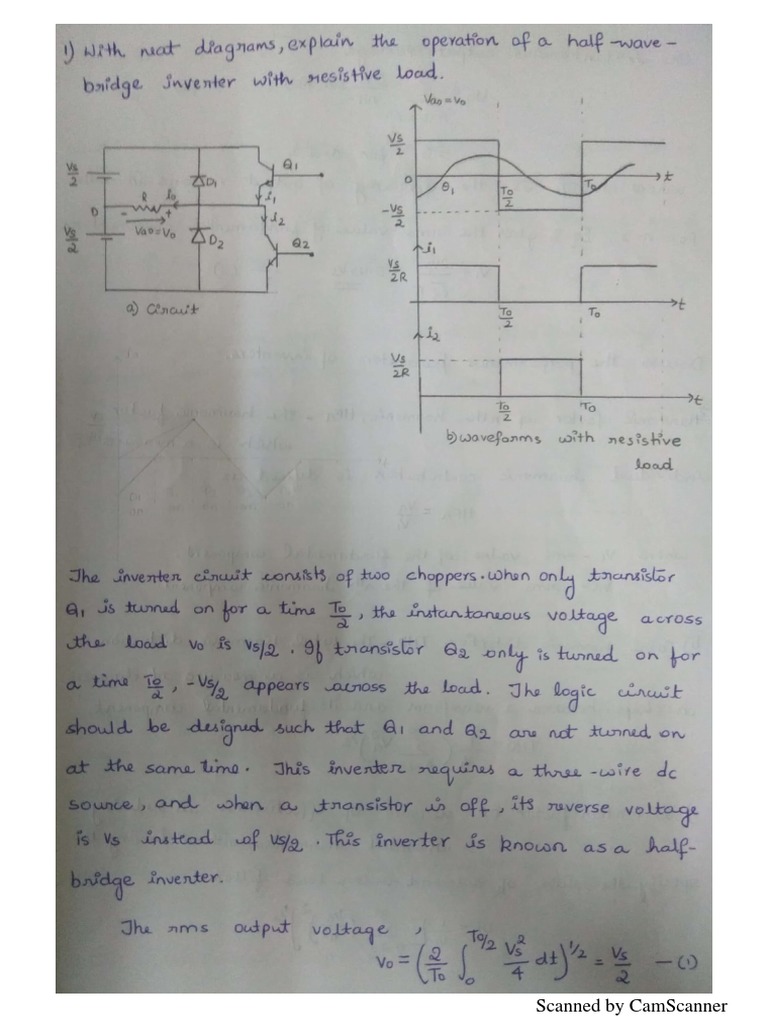 1) With neat diagrams, explain the operation of a half-wave-
bridge inverter with resistive load.
Vao = vo
Vs/2
0
-Vs/2
θ1
To/2
To
t
Vs/2
D1
Q1
R
io
i1
0
- +
Vao = Vo
i2
Vs/2
D2
Q2
a) Circuit
i1
Vs/2R
To/2
To
t
i2
Vs/2R
To/2
To
t
b) waveforms with resistive
load
The inverter circuit consists of two choppers. when only transistor
Q1 is turned on for a time To/2, the instantaneous voltage across
the load vo is Vs/2. If transistor Q2 only is turned on for
a time To/2, -Vs/2 appears across the load. The logic circuit
should be designed such that Q1 and Q2 are not turned on
at the same time. This inverter requires a three-wire dc
source, and when a transistor is off, its reverse voltage
is Vs instead of Vs/2. This inverter is known as a half-
bridge inverter.
The rms output voltage,
Vo = (2/To ∫0^To/2 Vs²/4 dt)^1/2 = Vs/2 — (1)
Scanned by CamScanner